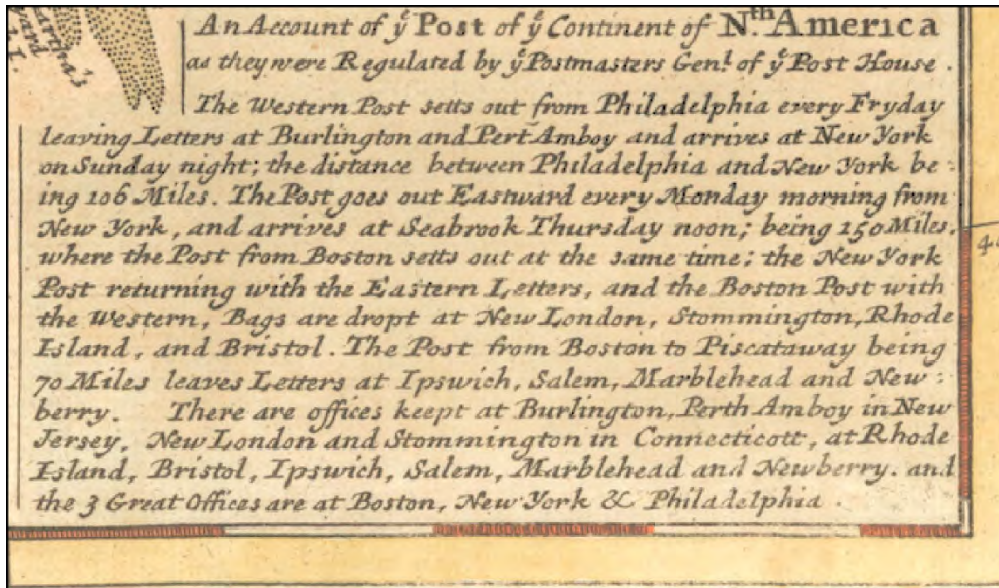 Martha's
yard
I.
An Account of yͤ Post of yͤ Continent of Nᵗʰ. America
as they were Regulated by yͤ Postmasters Genˡ. of yͤ Post House.
The Western Post setts out from Philadelphia every Fryday
leaving Letters at Burlington and Pert Amboy and arrives at New York
on Sunday night; the distance between Philadelphia and New York be:
ing 106 Miles. The Post goes out Eastward every Monday morning from
New York, and arrives at Seabrook Thursday noon; being 150 Miles,
where the Post from Boston setts out at the same time; the New York
Post returning with the Eastern Letters, and the Boston Post with
the Western, Bags are dropt at New London, Stommington, Rhode
Island, and Bristol. The Post from Boston to Piscataway being
70 Miles leaves Letters at Ipswich, Salem, Marblehead and New:
berry. There are offices keept at Burlington, Perth Amboy in New
Jersey, New London and Stommington in Connecticott, at Rhode
Island, Bristol, Ipswich, Salem, Marblehead and Newberry. and
the 3 Great Offices are at Boston, New York & Philadelphia.